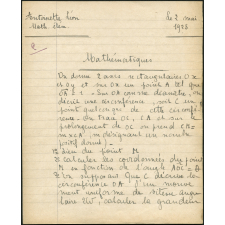 Léon
le 2 mai
Math Elem
1923
Mathématiques
On donne 2 axes rectangulaires Ox
et Oy et sur Ox un point A tel que
OA = 1. Sur OA comme diamètre, on
décrit une circonférence, soit C un
point quelconque de cette circonfé-
rence. On trace OC, CA et sur le
prolongement de OC on prend CM =
m CA, m désignant un nombre
positif donné.
Lieu du point M
calculer les coordonnées du point
en fonction de l'angle AOC = θ
supposant que C décrive la
circonférence OA d'un mouve-
ment uniforme de vitesse angu-
laire, calculer la grandeur